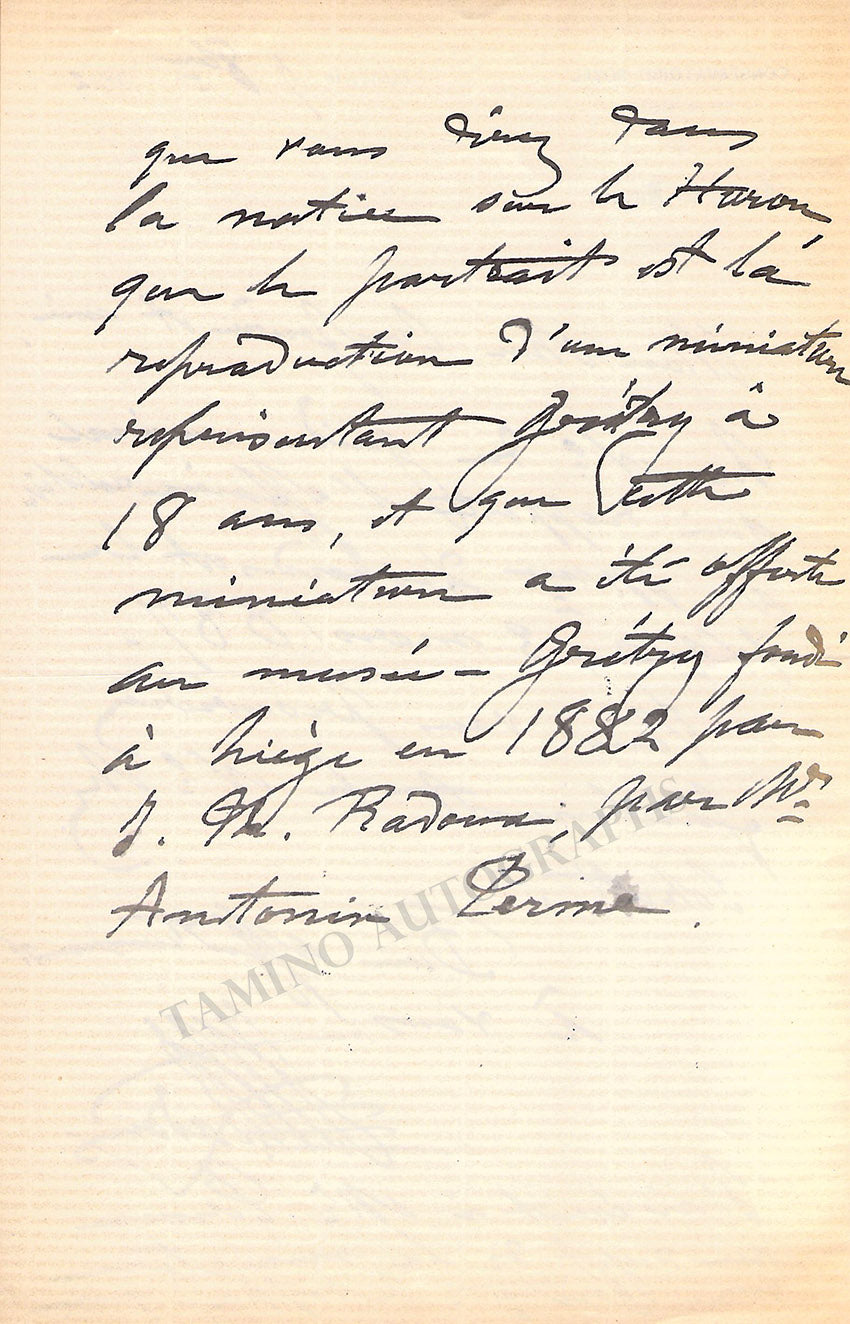 que vous direz dans
la notice sur le Huron,
que le portrait est la
reproduction d'une miniature
représentant Grétry à
18 ans, et que cette
miniature a été offerte
au musée-Grétry fondé
à Liège en 1882 par
J. Th. Radoux, par Mr
Antonin
TAMINO AUTOGRAPHS